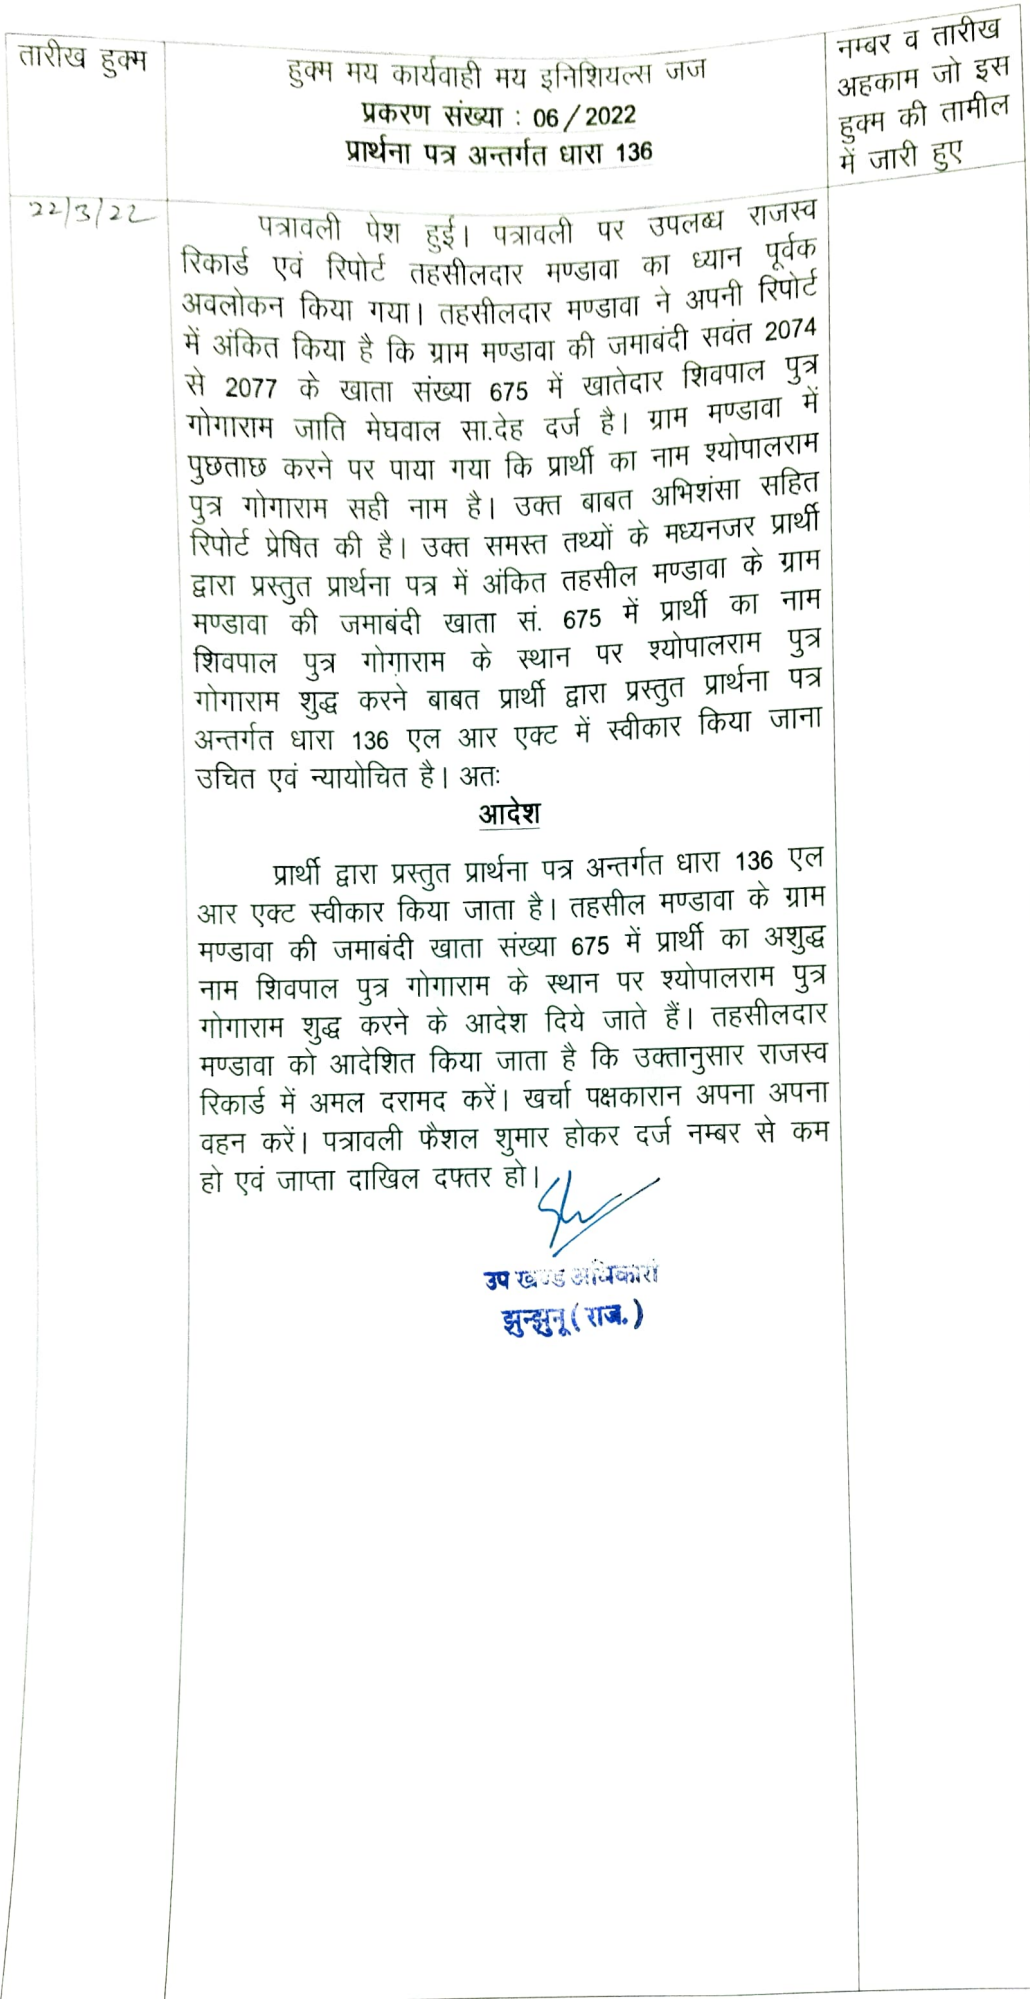 तारीख हुक्म
हुक्म मय कार्यवाही मय इनिशियल्स जज
प्रकरण संख्या : 06/2022
प्रार्थना पत्र अन्तर्गत धारा 136
नम्बर व तारीख
अहकाम जो इस
हुक्म की तामील
में जारी हुए
22/3/22
पत्रावली पेश हुई। पत्रावली पर उपलब्ध राजस्व
रिकार्ड एवं रिपोर्ट तहसीलदार मण्डावा का ध्यान पूर्वक
अवलोकन किया गया। तहसीलदार मण्डावा ने अपनी रिपोर्ट
में अंकित किया है कि ग्राम मण्डावा की जमाबंदी सवंत 2074
से 2077 के खाता संख्या 675 में खातेदार शिवपाल पुत्र
गोगाराम जाति मेघवाल सा.देह दर्ज है। ग्राम मण्डावा में
पुछताछ करने पर पाया गया कि प्रार्थी का नाम श्योपालराम
पुत्र गोगाराम सही नाम है। उक्त बाबत अभिशंसा सहित
रिपोर्ट प्रेषित की है। उक्त समस्त तथ्यों के मध्यनजर प्रार्थी
द्वारा प्रस्तुत प्रार्थना पत्र में अंकित तहसील मण्डावा के ग्राम
मण्डावा की जमाबंदी खाता सं. 675 में प्रार्थी का नाम
शिवपाल पुत्र गोगाराम के स्थान पर श्योपालराम पुत्र
गोगाराम शुद्ध करने बाबत प्रार्थी द्वारा प्रस्तुत प्रार्थना पत्र
अन्तर्गत धारा 136 एल आर एक्ट में स्वीकार किया जाना
उचित एवं न्यायोचित है। अतः
आदेश
प्रार्थी द्वारा प्रस्तुत प्रार्थना पत्र अन्तर्गत धारा 136 एल
आर एक्ट स्वीकार किया जाता है। तहसील मण्डावा के ग्राम
मण्डावा की जमाबंदी खाता संख्या 675 में प्रार्थी का अशुद्ध
नाम शिवपाल पुत्र गोगाराम के स्थान पर श्योपालराम पुत्र
गोगाराम शुद्ध करने के आदेश दिये जाते हैं। तहसीलदार
मण्डावा को आदेशित किया जाता है कि उक्तानुसार राजस्व
रिकार्ड में अमल दरामद करें। खर्चा पक्षकारान अपना अपना
वहन करें। पत्रावली फैशल शुमार होकर दर्ज नम्बर से कम
हो एवं जाप्ता दाखिल दफ्तर हो।
उप खण्ड अधिकारी
झुन्झुनू (राज.)